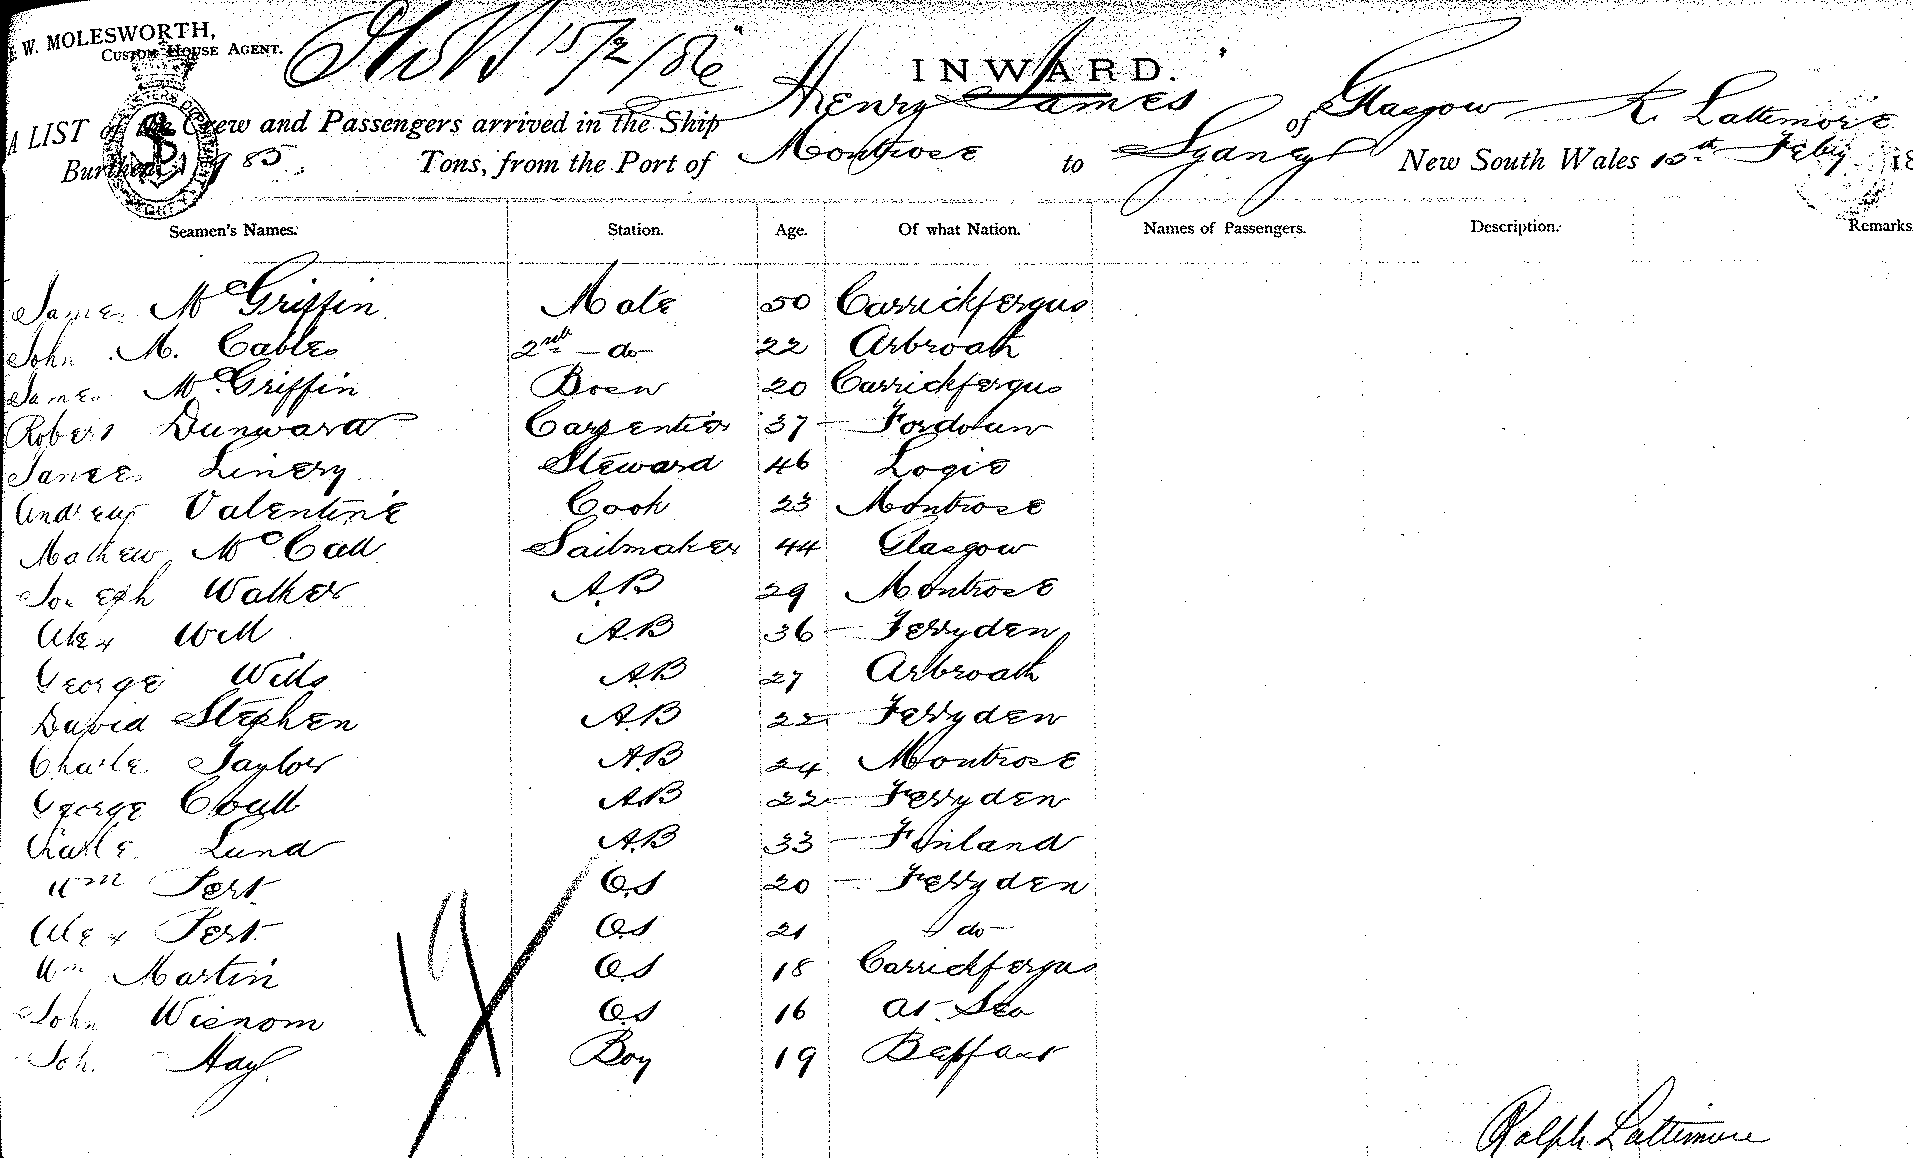 W. MOLESWORTH,
CUSTOM HOUSE AGENT.
15/2/86
INWARD.
A LIST of the Crew and Passengers arrived in the Ship Henry James of Glasgow R. Lattimore
Burthen 985 Tons, from the Port of Montrose to Sydney New South Wales 15th Feby 18
Seamen's Names. Station. Age. Of what Nation. Names of Passengers. Description. Remarks
James McGriffin Mate 50 Carrickfergus
John M. Cables 2nd - do 22 Arbroath
James McGriffin Bosn 20 Carrickfergus
Robert Dunward Carpentier 37 Fordoun
James Linery Steward 46 Logie
Andrew Valentine Cook 23 Montrose
Mathew McCall Sailmaker 44 Glasgow
Joseph Walker A.B 29 Montrose
Alex Will A.B 36 Ferryden
George Wills A.B 27 Arbroath
David Stephen A.B 22 Ferryden
Charle Taylor A.B 24 Montrose
George Coull A.B 22 Ferryden
Charle Lund A.B 33 Finland
Wm Pert O.S 20 Ferryden
Alex Pert O.S 21 do
Wm Martin O.S 18 Carrickfergus
John Wisnom O.S 16 at Sea
Joh. Hay Boy 19
19
Ralph Lattimore